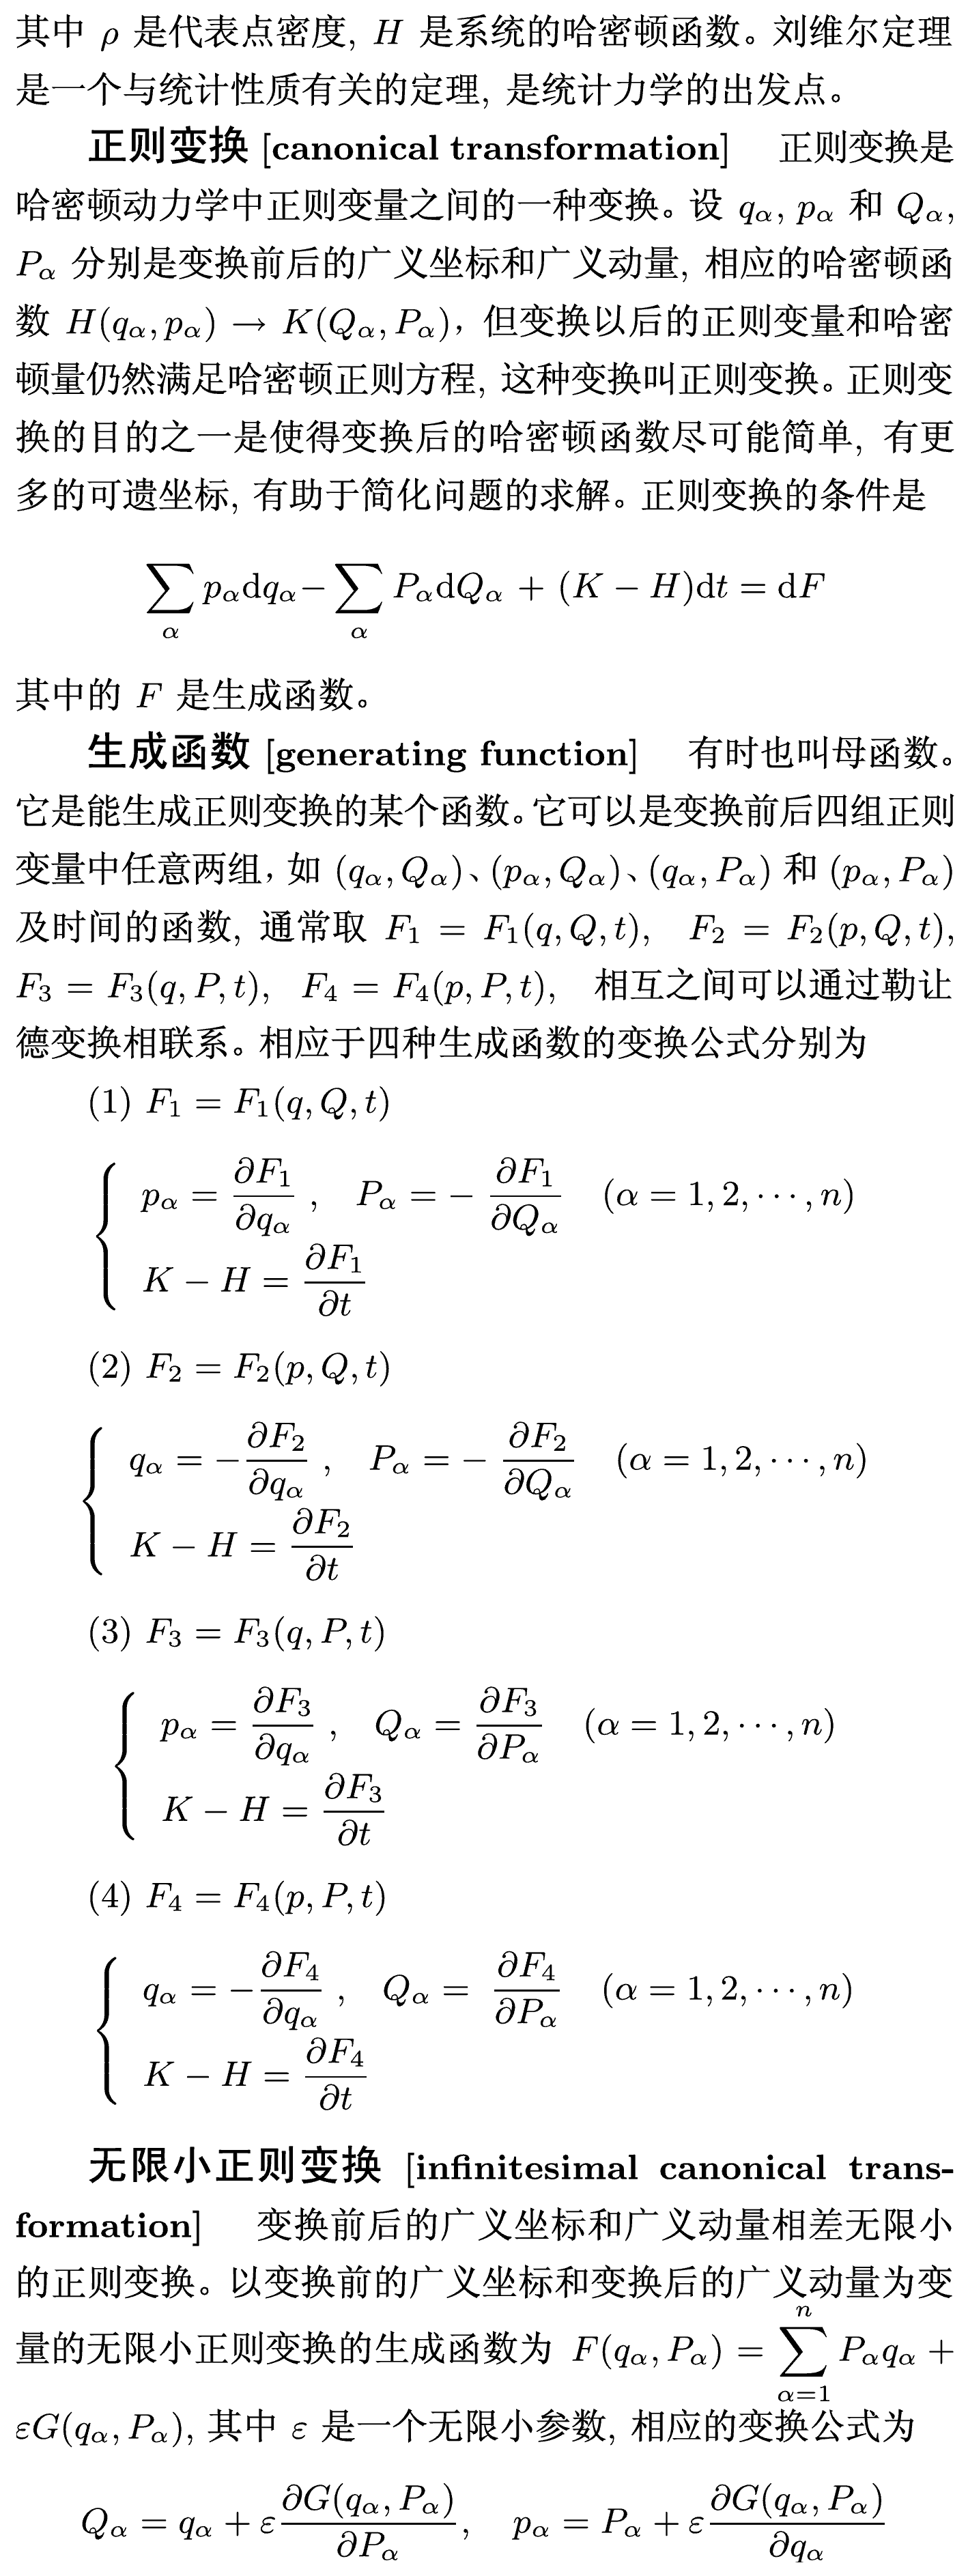 其中 ρ 是代表点密度, H 是系统的哈密顿函数。刘维尔定理
是一个与统计性质有关的定理, 是统计力学的出发点。
正则变换 [canonical transformation] 正则变换是
哈密顿动力学中正则变量之间的一种变换。设 $q_\alpha$, $p_\alpha$ 和 $Q_\alpha$,
$P_\alpha$ 分别是变换前后的广义坐标和广义动量, 相应的哈密顿函
数 $H(q_\alpha, p_\alpha) \to K(Q_\alpha, P_\alpha)$, 但变换以后的正则变量和哈密
顿量仍然满足哈密顿正则方程, 这种变换叫正则变换。正则变
换的目的之一是使得变换后的哈密顿函数尽可能简单, 有更
多的可遗坐标, 有助于简化问题的求解。正则变换的条件是
$\sum_\alpha p_\alpha \mathrm{d}q_\alpha - \sum_\alpha P_\alpha \mathrm{d}Q_\alpha + (K - H)\mathrm{d}t = \mathrm{d}F$
其中的 F 是生成函数。
生成函数 [generating function] 有时也叫母函数。
它是能生成正则变换的某个函数。它可以是变换前后四组正则
变量中任意两组, 如 $(q_\alpha, Q_\alpha)$、$(p_\alpha, Q_\alpha)$、$(q_\alpha, P_\alpha)$ 和 $(p_\alpha, P_\alpha)$
及时间的函数, 通常取 $F_1 = F_1(q, Q, t)$, $F_2 = F_2(p, Q, t)$,
$F_3 = F_3(q, P, t)$, $F_4 = F_4(p, P, t)$, 相互之间可以通过勒让
德变换相联系。相应于四种生成函数的变换公式分别为
(1) $F_1 = F_1(q, Q, t)$
$p_\alpha = \frac{\partial F_1}{\partial q_\alpha}, \quad P_\alpha = -\frac{\partial F_1}{\partial Q_\alpha} \quad (\alpha = 1, 2, \cdots, n)$
$K - H = \frac{\partial F_1}{\partial t}$
(2) $F_2 = F_2(p, Q, t)$
$q_\alpha = -\frac{\partial F_2}{\partial q_\alpha}, \quad P_\alpha = -\frac{\partial F_2}{\partial Q_\alpha} \quad (\alpha = 1, 2, \cdots, n)$
$K - H = \frac{\partial F_2}{\partial t}$
(3) $F_3 = F_3(q, P, t)$
$p_\alpha = \frac{\partial F_3}{\partial q_\alpha}, \quad Q_\alpha = \frac{\partial F_3}{\partial P_\alpha} \quad (\alpha = 1, 2, \cdots, n)$
$K - H = \frac{\partial F_3}{\partial t}$
(4) $F_4 = F_4(p, P, t)$
$q_\alpha = -\frac{\partial F_4}{\partial q_\alpha}, \quad Q_\alpha = \frac{\partial F_4}{\partial P_\alpha} \quad (\alpha = 1, 2, \cdots, n)$
$K - H = \frac{\partial F_4}{\partial t}$
无限小正则变换 [infinitesimal canonical trans-
formation] 变换前后的广义坐标和广义动量相差无限小
的正则变换。以变换前的广义坐标和变换后的广义动量为变
量的无限小正则变换的生成函数为 $F(q_\alpha, P_\alpha) = \sum_{\alpha=1}^{n} P_\alpha q_\alpha +$
$\varepsilon G(q_\alpha, P_\alpha)$, 其中 ε 是一个无限小参数, 相应的变换公式为
$Q_\alpha = q_\alpha + \varepsilon \frac{\partial G(q_\alpha, P_\alpha)}{\partial P_\alpha}, \quad p_\alpha = P_\alpha + \varepsilon \frac{\partial G(q_\alpha, P_\alpha)}{\partial q_\alpha}$